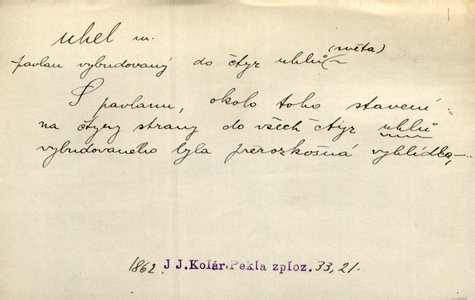 uhel m.
(světa)
pavlan vybudovaný do čtyr uhlů
S pavlanu, okolo toho stavení
na čtyry strany do všech čtyr uhlů
vybudovaného byla přerozkošná vyhlídka,–
1862 J J.Kolár Pekla zploz. 33, 21.